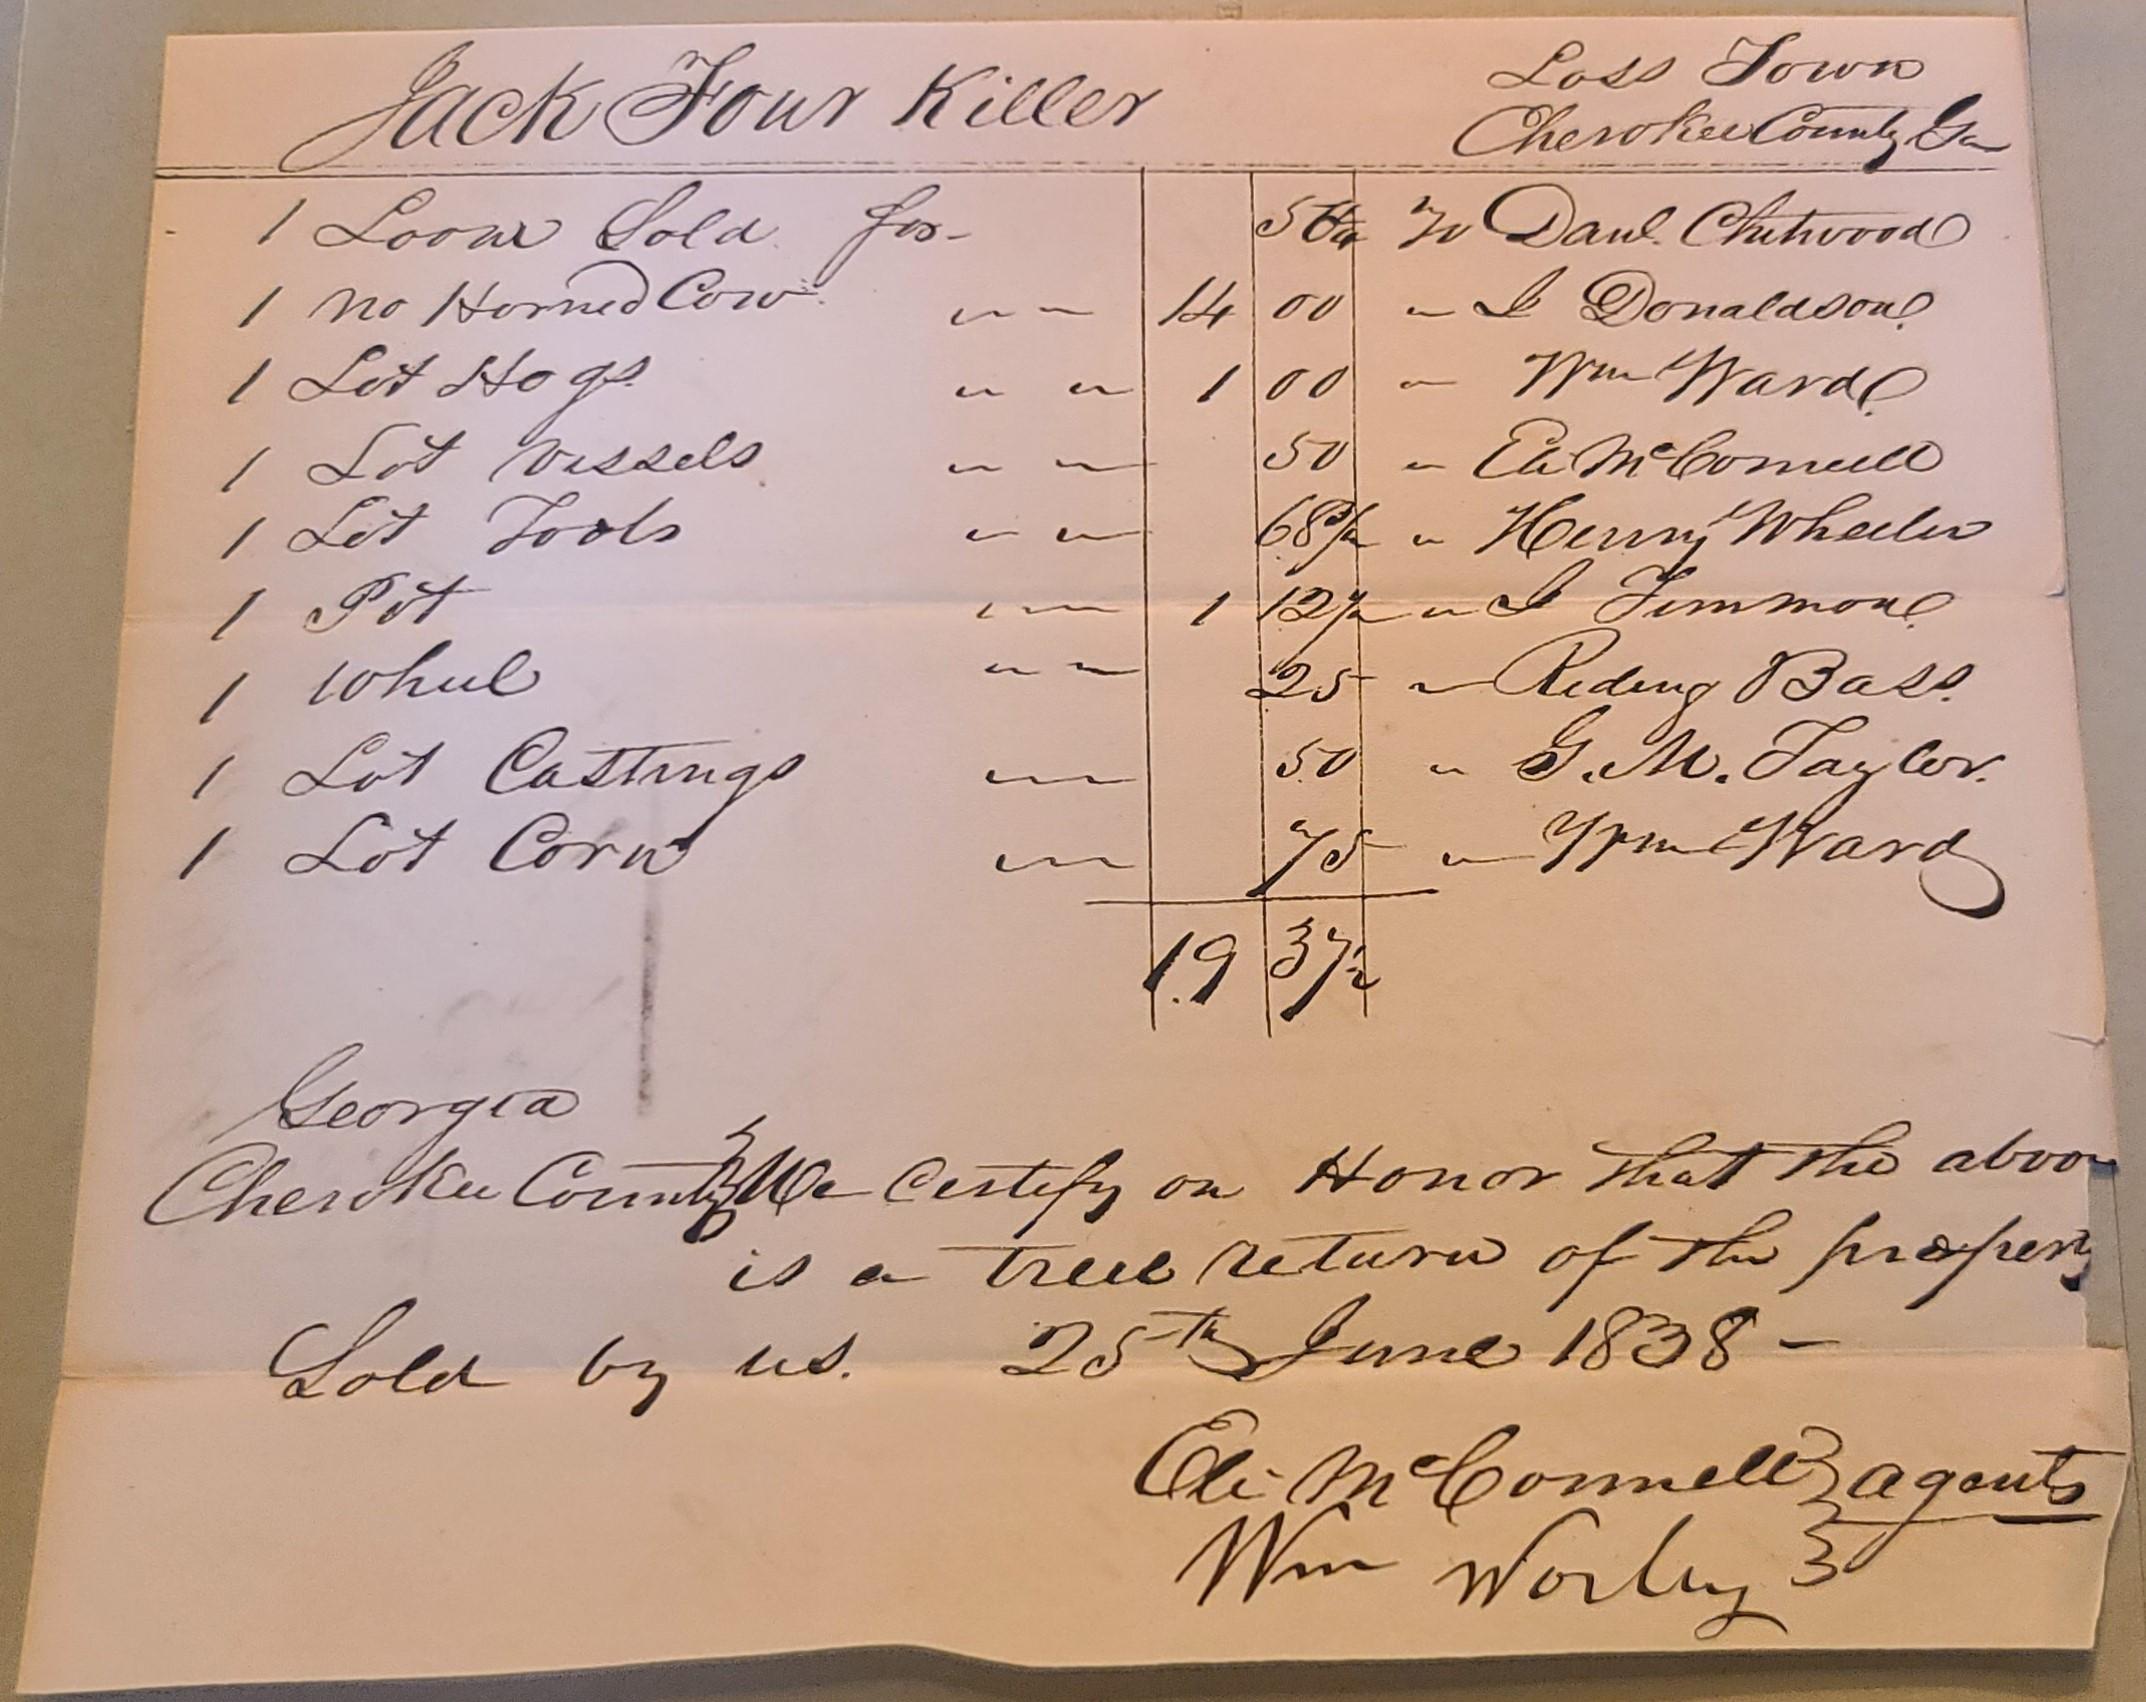 Jack Four Killer Loss Town
Cherokee County Ga
1 Loom Sold for - 56¼ To Danl. Chitwood
1 No Horned Cow " " 14 00 " I Donaldson
1 Lot Hogs " " 1 00 " Wm Ward
1 Lot Vessels " " 50 " Eli McConnell
1 Lot Tools " " 68¾ " Henry Wheeler
1 Pot " " 1 12½ " I Timmons
1 Wheel " " 25 " Reding Bass.
1 Lot Castings " " 50 " G. M. Taylor.
1 Lot Corn " " 75 " Wm Ward
19 37½
Georgia
Cherokee County } We Certify on Honor that the above
is a true return of the property
Sold by us. 25th June 1838 -
Eli McConnell } agents
Wm Worley }